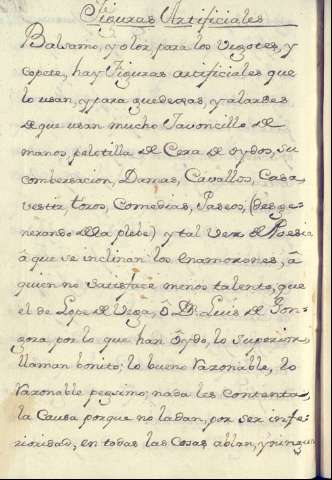 Figuras Artificiales
Balsamo, y olor para los vigotes, y
copete, hay Figuras artificiales que
lo usan, y para guedexas, y alardes
de que usan mucho Javoncillo de
manos, pelotilla de Cera de oydos, su
combersacion, Damas, Cavallos, Caza,
vestir, toros, Comedias, Paseos, (desge-
nerando de la plebe) y tal vez de Poesia
â que se inclinan los enamorones, â
quien no satisface menos talento, que
el de Lope de Vega, ô Dn. Luis de Gon-
gora por lo que han ôydo, lo superior
llaman bonito; lo bueno razonable, lo
razonable pesimo; nada les contenta,
la Causa porque no la dan, por ser infe-
rioridad, en todas las Cosas ablan, y ningun